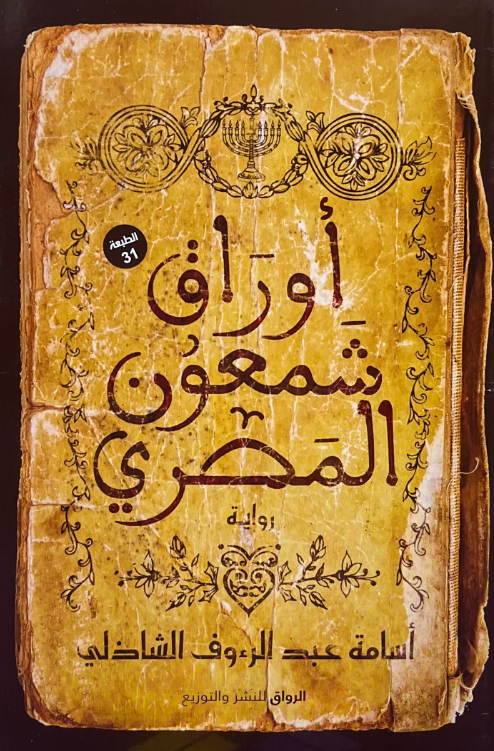 الطبعة
31
أَوْرَاق
شَمعُون
المَصري
رواية
أسامة عبد الرءوف الشاذلي
الرواق للنشر والتوزيع